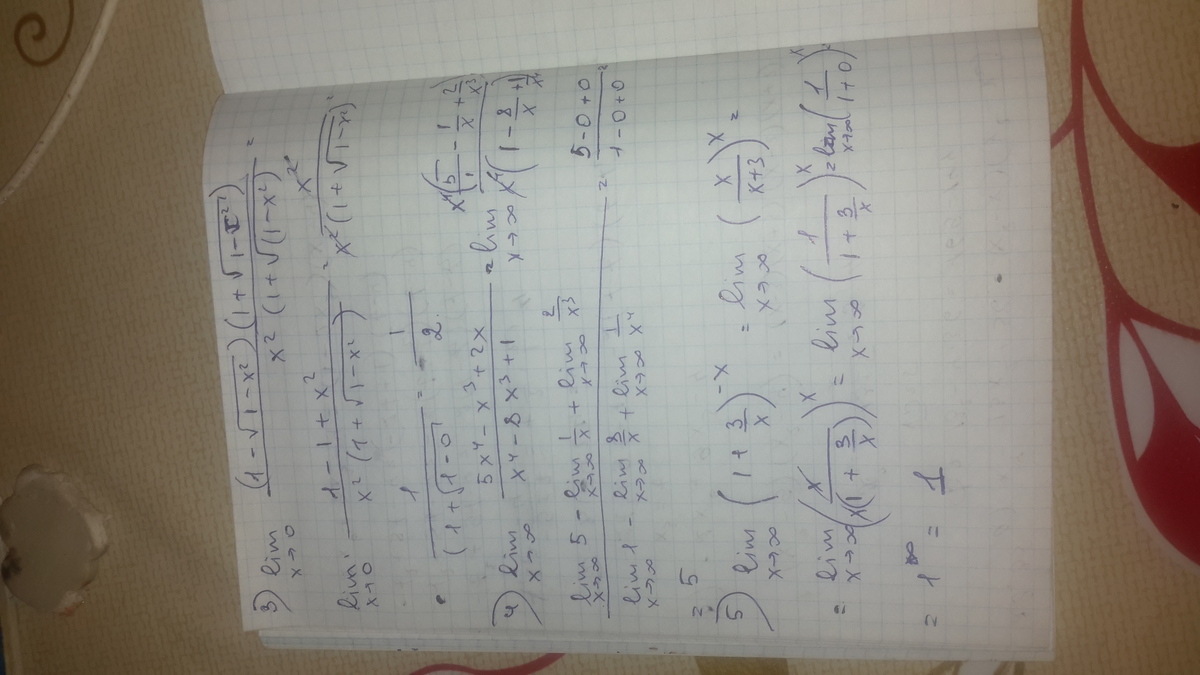 3) lim x→0 (1-√(1-x²))(1+√(1-x²)) / x²(1+√(1-x²)) =
lim x→0 1-1+x² / x²(1+√(1-x²)) = x² / x²(1+√(1-x²)) =
1 / (1+√(1-0)) = 1/2.
4) lim x→∞ 5x⁴-x³+2x / x⁴-8x³+1 = lim x→∞ x⁴(5/1 - 1/x + 2/x³) / x⁴(1 - 8/x + 1/x⁴) =
lim x→∞ 5 - lim x→∞ 1/x + lim x→∞ 2/x³ / lim x→∞ 1 - lim x→∞ 8/x + lim x→∞ 1/x⁴ = 5-0+0 / 1-0+0 =
= 5
5) lim x→∞ (1 + 3/x)^-x = lim x→∞ (x / x+3)^x =
= lim x→∞ (x / x(1 + 3/x))^x = lim x→∞ (1 / 1 + 3/x)^x = lim x→∞ (1 / 1+0)^x =
= 1^∞ = 1